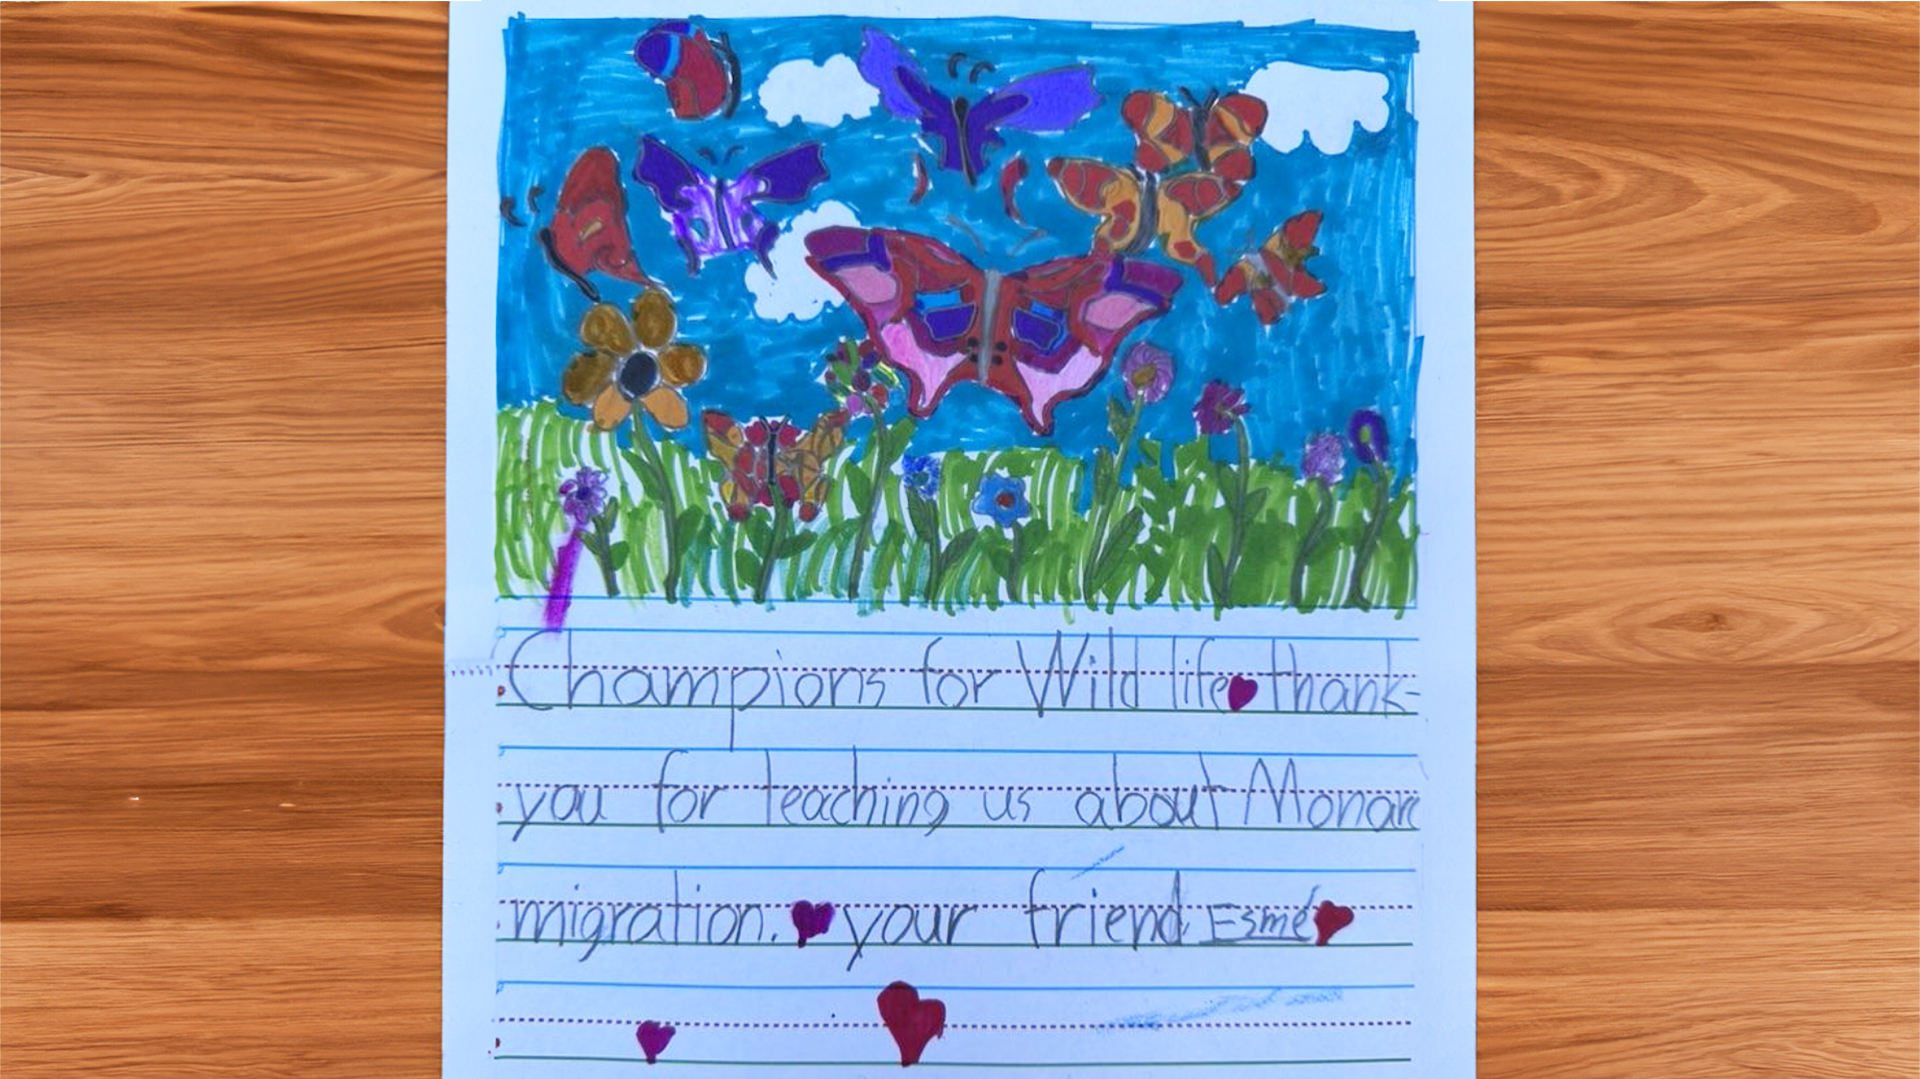 Champions for Wild life thank-
you for teaching us about Monarc
migration. your friend Esmé